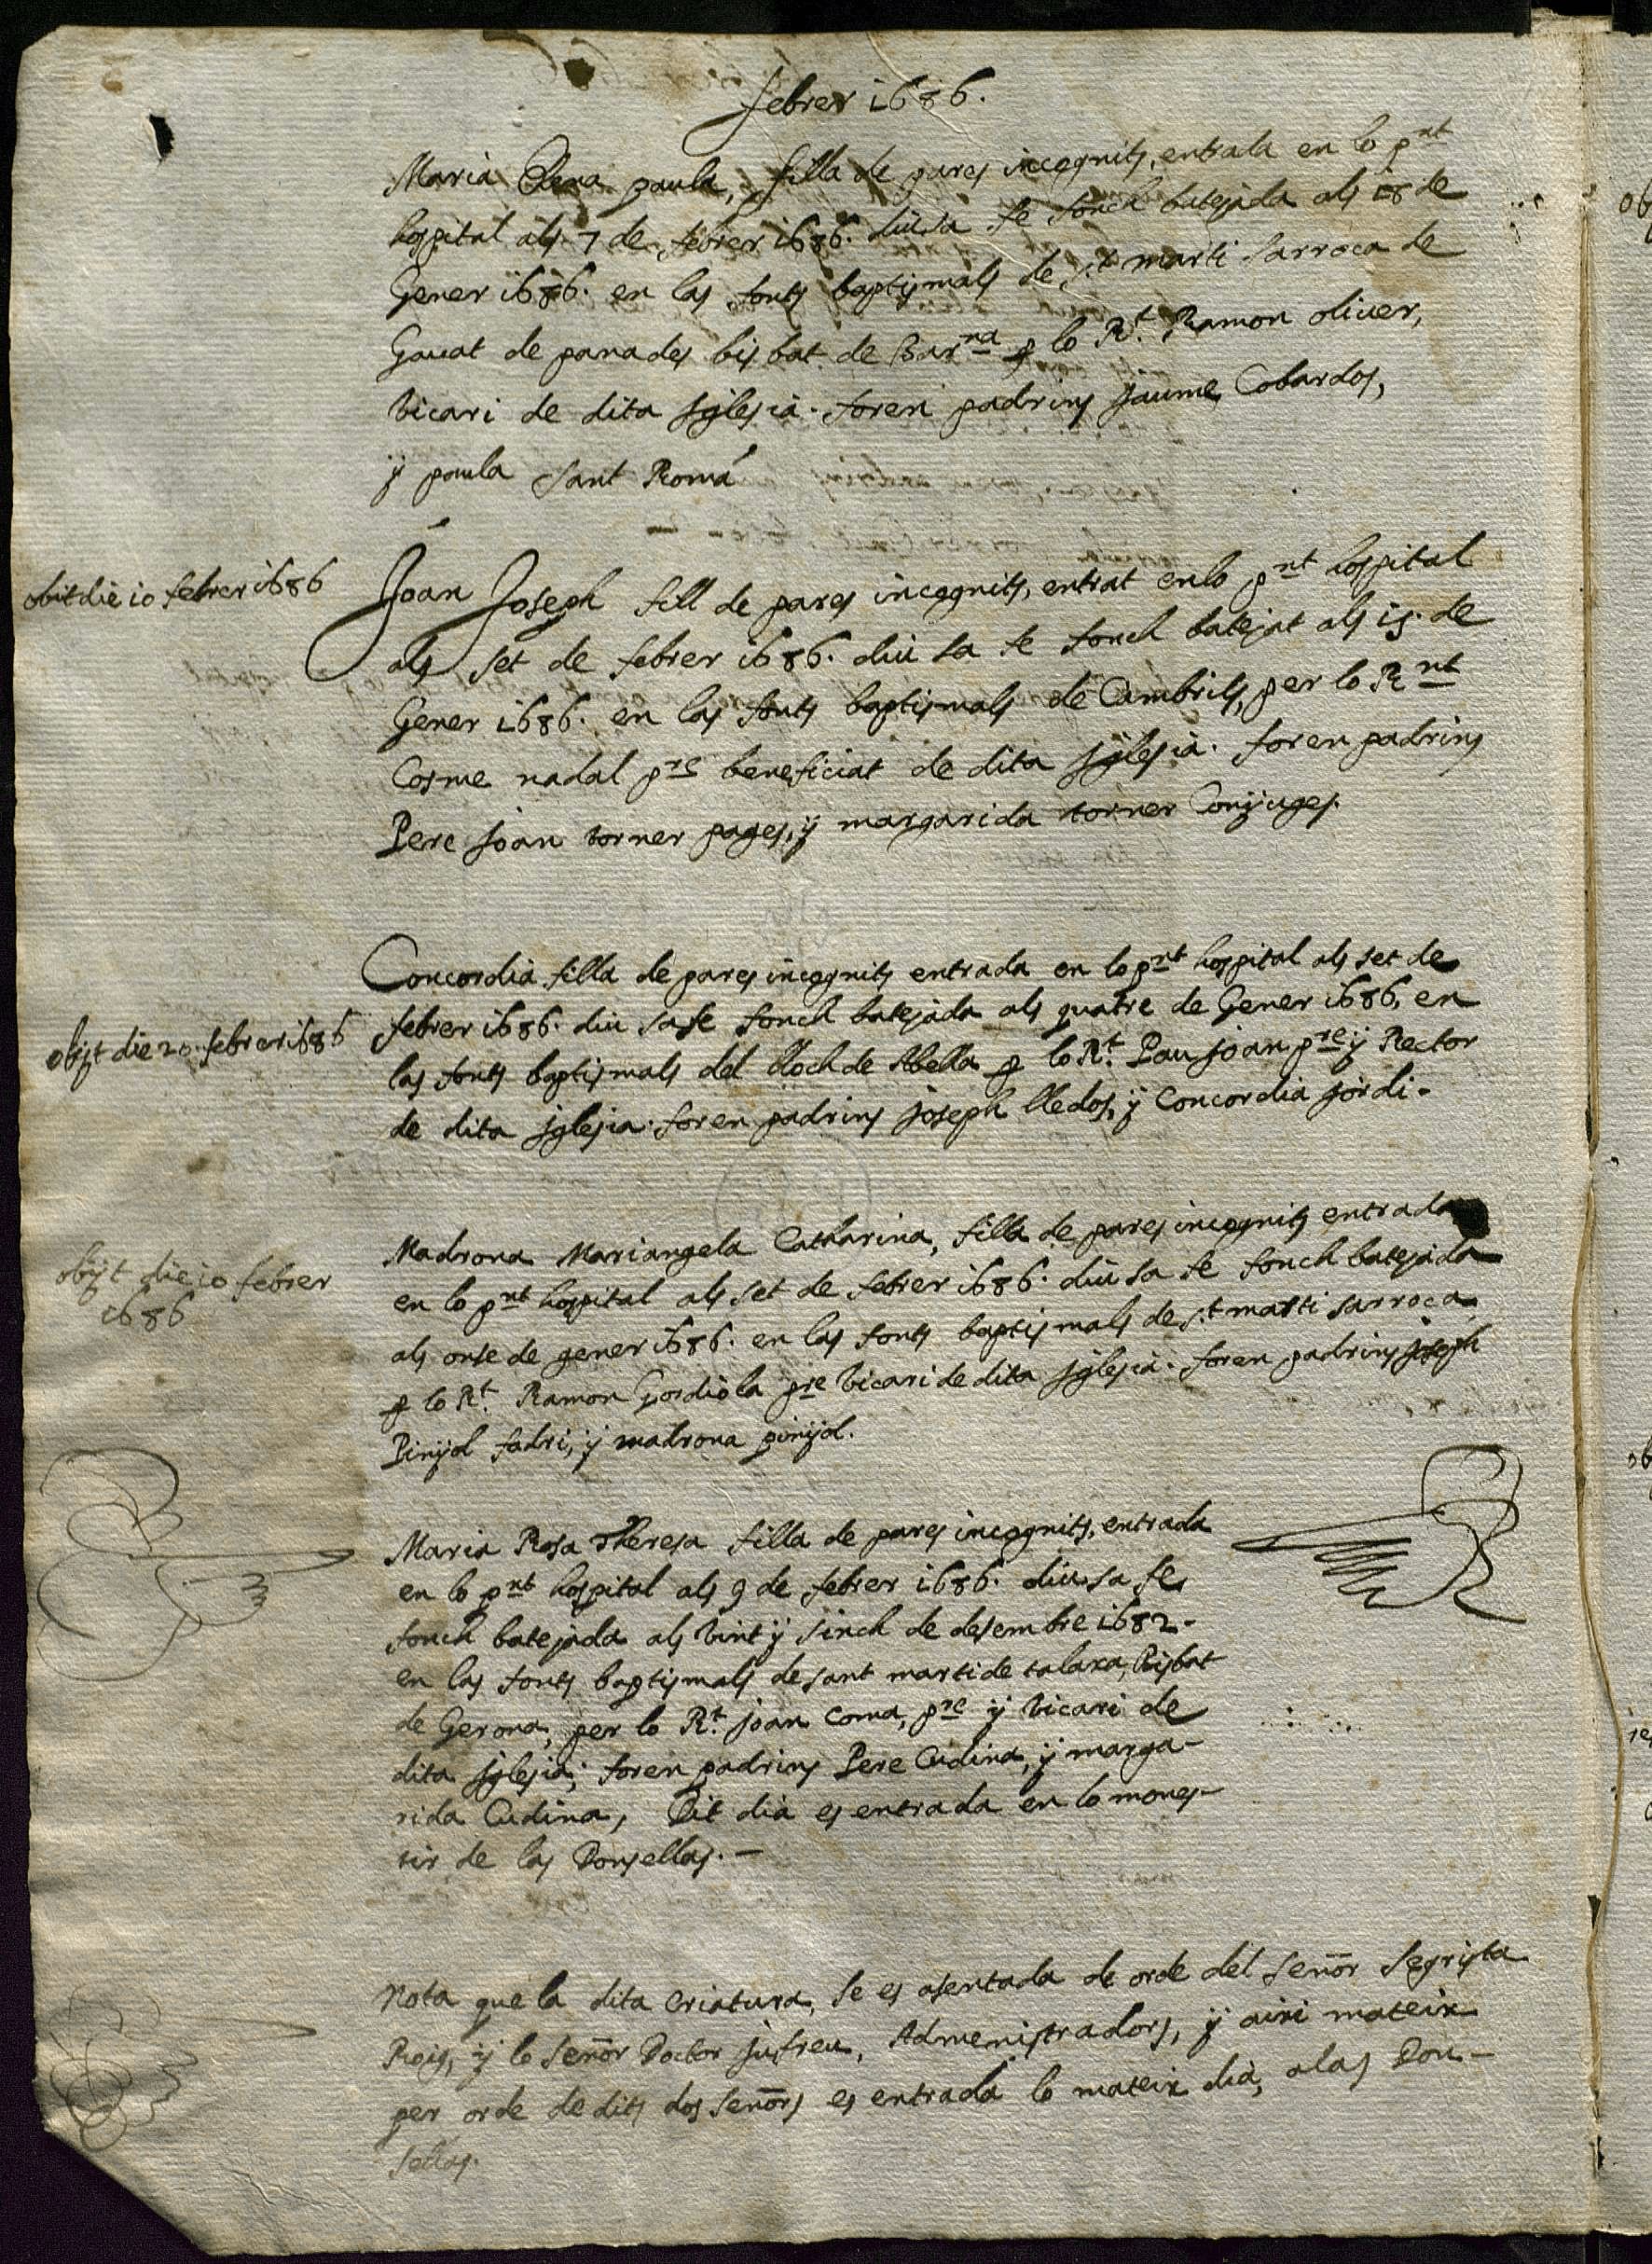 febrer 1686.
Maria Elena paula, filla de pares incognits, entrada en lo pnt
hospital als 7 de febrer 1686. diu sa fe fonch batejada als 18 de
Gener 1686. en las fonts baptismals de St marti sarroca de
Gavat de panades bisbat de Barna p lo Rt. Ramon oliver,
Vicari de dita Iglesia. foren padrins Jaume Cobardos,
y paula Sant Romá
obit die 10 febrer 1686
Joan Joseph fill de pares incognits, entrat en lo pnt hospital
als set de febrer 1686. diu sa fe fonch batejat als 15. de
Gener 1686. en las fonts baptismals de Cambrils, per lo Rnt
Cosme nadal pre beneficiat de dita Iglesia. foren padrins
Pere Joan torner pages, y margarida torner Conjuges.
Concordia filla de pares incognits entrada en lo pnt hospital als set de
obijt die 20. febrer 1686
febrer 1686. diu sa fe fonch batejada als quatre de Gener 1686, en
las fonts baptismals del lloch de Abella p lo Rt. Pau Joan pre y Rector
de dita Iglesia. foren padrins Joseph lledos, y Concordia Jordi.
obijt die 10 febrer
1686
Madrona Mariangela Catharina, filla de pares incognits entrada
en lo pnt hospital als set de febrer 1686. diu sa fe fonch batejada
als onse de gener 1686. en las fonts baptismals de St marti sarroca,
p lo Rt. Ramon Gordiola pre Vicari de dita Iglesia. foren padrins Joseph
Pinyol fadri, y madrona pinyol.
Maria Rosa Theresa filla de pares incognits, entrada
en lo pnt hospital als 9 de febrer 1686. diu sa fe
fonch batejada als Vint y sinch de desembre 1682.
en las fonts baptismals de sant marti de talaxa, Bisbat
de Gerona, per lo Rt. Joan Coma, pre y Vicari de
dita Iglesia; foren padrins Pere Cudina, y marga-
rida Cudina, Dit dia es entrada en lo mones-
tir de las Donsellas. -
Nota que la dita criatura, se es asentada de orde del señor Segrista
Roig, y lo señor Doctor Jufreu, Admenistradors, y aixi mateix
per orde de dits dos señors es entrada lo mateix dia, a las Don-
sellas.